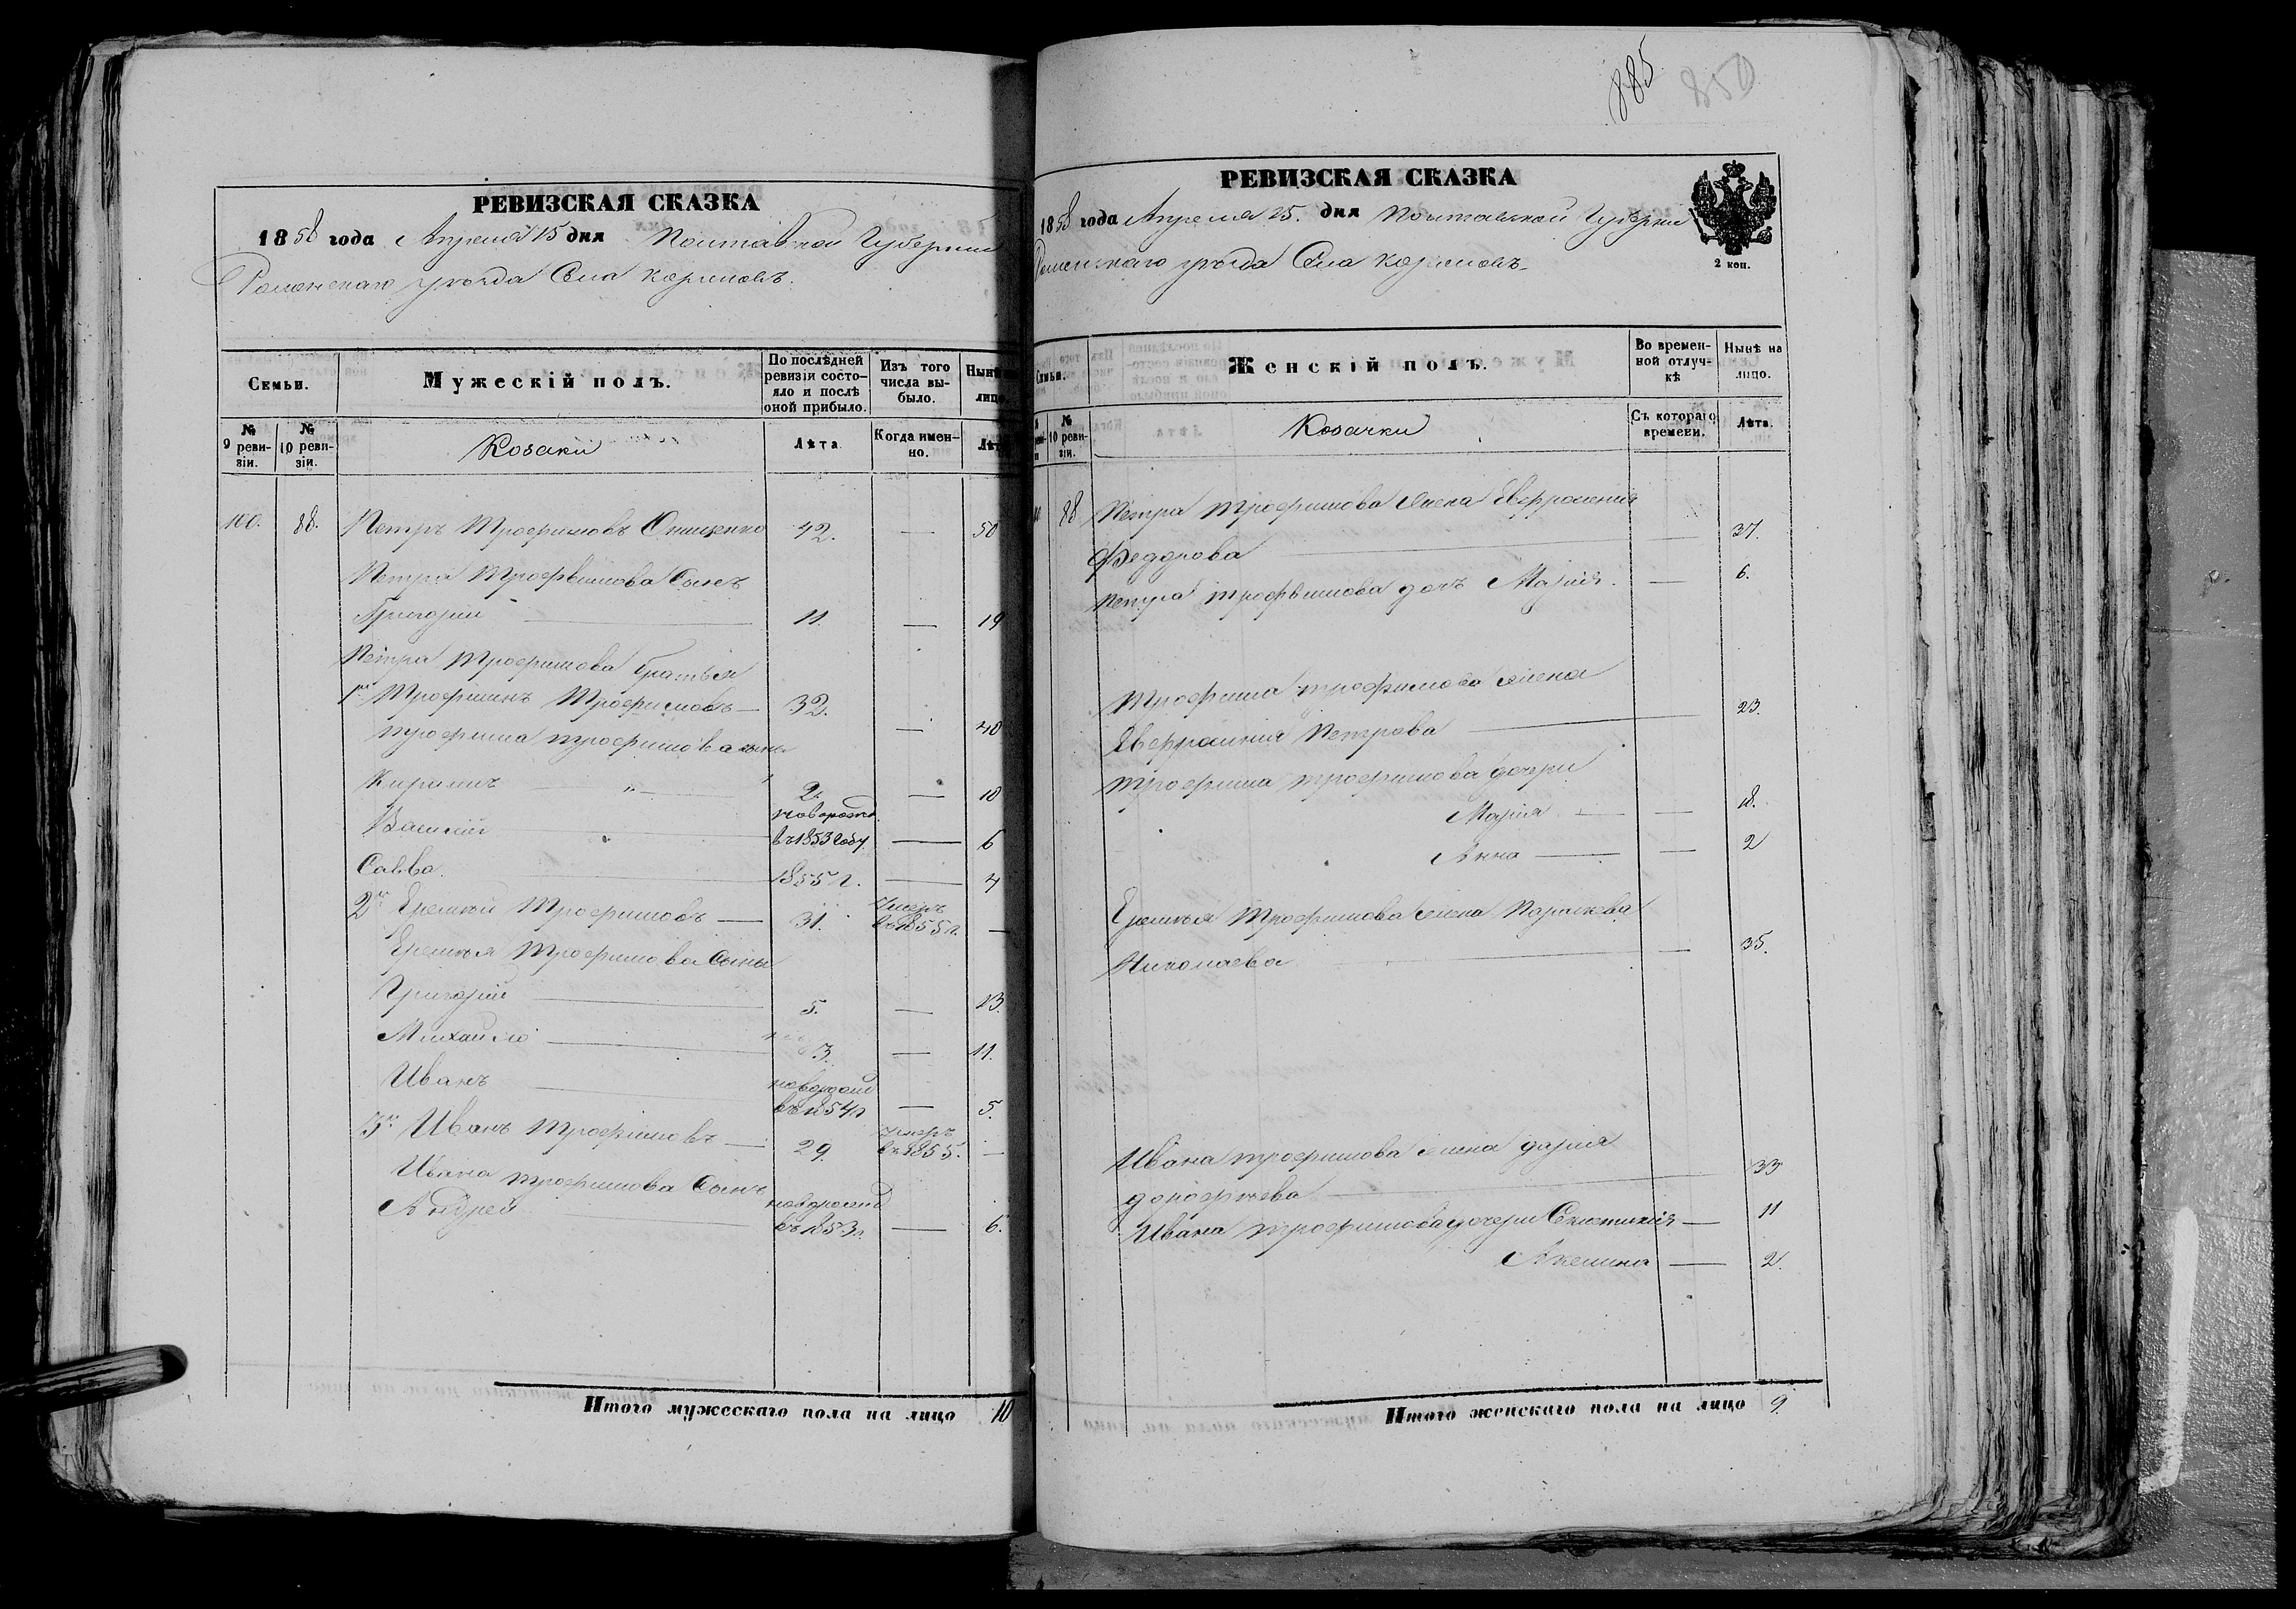 885
850
РЕВИЗСКАЯ СКАЗКА
1858 года Апреля 15 дня Полтавской Губернии
Роменскаго уезда Села кореновъ.
Семьи.
Мужескій полъ.
По послѣдней ревизіи состояло и послѣ оной прибыло.
Изъ того числа выбыло.
Нынѣ
лицо
№ 9 ревизіи.
№ 10 ревизіи.
Козаки
Лѣта
Когда именно.
100. 88. Петръ Трофимовъ Онищенко 42. — 50
Петра Трофимова Сынъ
Григорий 11. — 19
Петра Трофимова братья
1й Трофимъ Трофимовъ — 32. — 40
трофима трофимова сыны
Кирилъ " 2. — 10
новорожд
Василий въ 1853 году — 6
Савва. 1855 г. — 4
2й Еремей Трофимовъ — 31. умеръ в 1855 г. —
Еремея Трофимова Сыны
Григорий 5. — 13.
Михайло 3. — 11.
Иванъ новорожд въ 1854 г — 5.
3й Иванъ трофимовъ — 29. умеръ в 1855. —
Ивана трофимова Сынъ
Андрей новорожд въ 1853 г. — 6.
Итого мужескаго пола на лицо 10
РЕВИЗСКАЯ СКАЗКА
1858 года Апреля 25. дня Полтавской Губернии
Роменскаго уезда Села кореновъ
2 коп.
Семьи.
Женскій полъ.
Во временной отлучкѣ
Нынѣ на лицо.
№ 10 ревизіи.
Козачки
Съ котораго времени.
Лѣта.
88 Петра трофимова жена Евфросения
Федорова 37.
Петра трофимова дочь Мария. — 6.
Трофима трофимова жена
Евфросиния Петрова 23.
трофима трофимова дочери
Мария — — 18.
Анна — — 2
Еремея Трофимова жена Параскева
Николаева — 35.
Ивана трофимова жена дария
дорофеева 33
Ивана трофимова дочери — 11
Акелина — 2.
Итого женскаго пола на лицо 9.